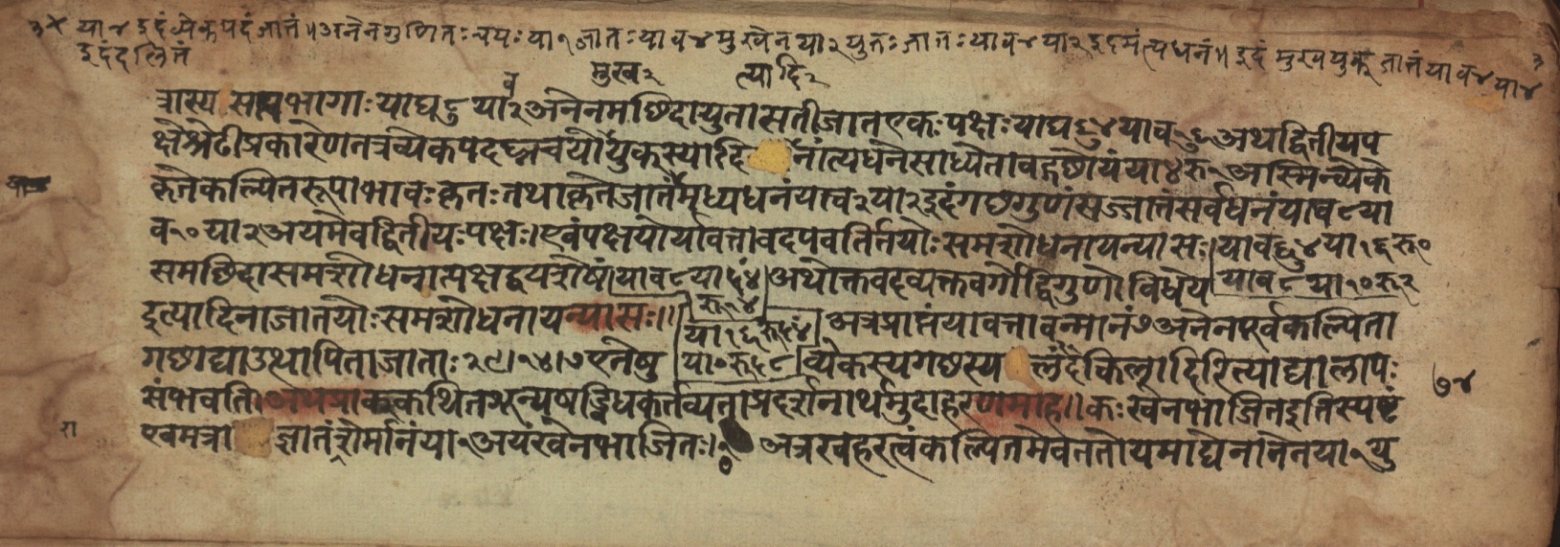 या ४ इदं व्येकपदं जातं ॥ अनेन गुणितः चयः या १ जातः याव ४ मुखेन या २ युतः जातः याव ४ या २ इदमंत्यधनं ॥ इदं मुखयुक् जातं याव ४ या ४
इदं दलितं
मुख २ त्यादि २
त्रास्य सप्तभागाः याघ ६ याव २ अनेन मछिदा युता सती जात एकः पक्षः याघ ६४ याव अथ द्वितीयप
क्षे श्रेढीप्रकारेण तत्र व्येकपदघ्नचयो युक् स्यादि नांत्यधने साध्ये तावद्गछोयं या ४ रु १ अस्मिन्व्येके
कृते कल्पितरूपाभावः कृतः तथा कृते जातं मध्यधनं याव २ या २ इदं गछगुणं सज्जातं सर्वधनं याव ८ या
व १० या २ अयमेव द्वितीयः पक्षः । एवं पक्षयोर्यावत्तावदपवर्तितयोः समशोधनाय न्यासः । याव ६४ या १६ रु ०
समछिदा समशोधनात्पक्षद्वयशेषं । याव ८ या ५४ अथोक्तवदव्यक्तवर्गादि गुणो विधेये याव ८ या १० रु २
रु १४
इत्यादिना जातयोः समशोधनाय न्यासः ॥ या १६ रु ५४ अत्र प्राप्तं यावत्तावन्मानं ७ अनेन पूर्वकल्पिता
गछाद्या उत्थापिता जाताः २९ । १४ । ७ एतेषु या ० रु ५८ व्येकस्य गछस्य लं दं किलादिरित्याद्यालापः
संभवति । अथ प्राक्कथित षड्विधकर्तव्यताप्रदर्शनार्थमुदाहरणमाह ॥ कः खेन भाजित इति स्पष्टं
७४
एवमत्रा ज्ञातं राशेर्मानं या १ अयं खेन भाजितः । अत्र खहरत्वं कल्पितमेव ततोयमाद्येनानेन या १ यु